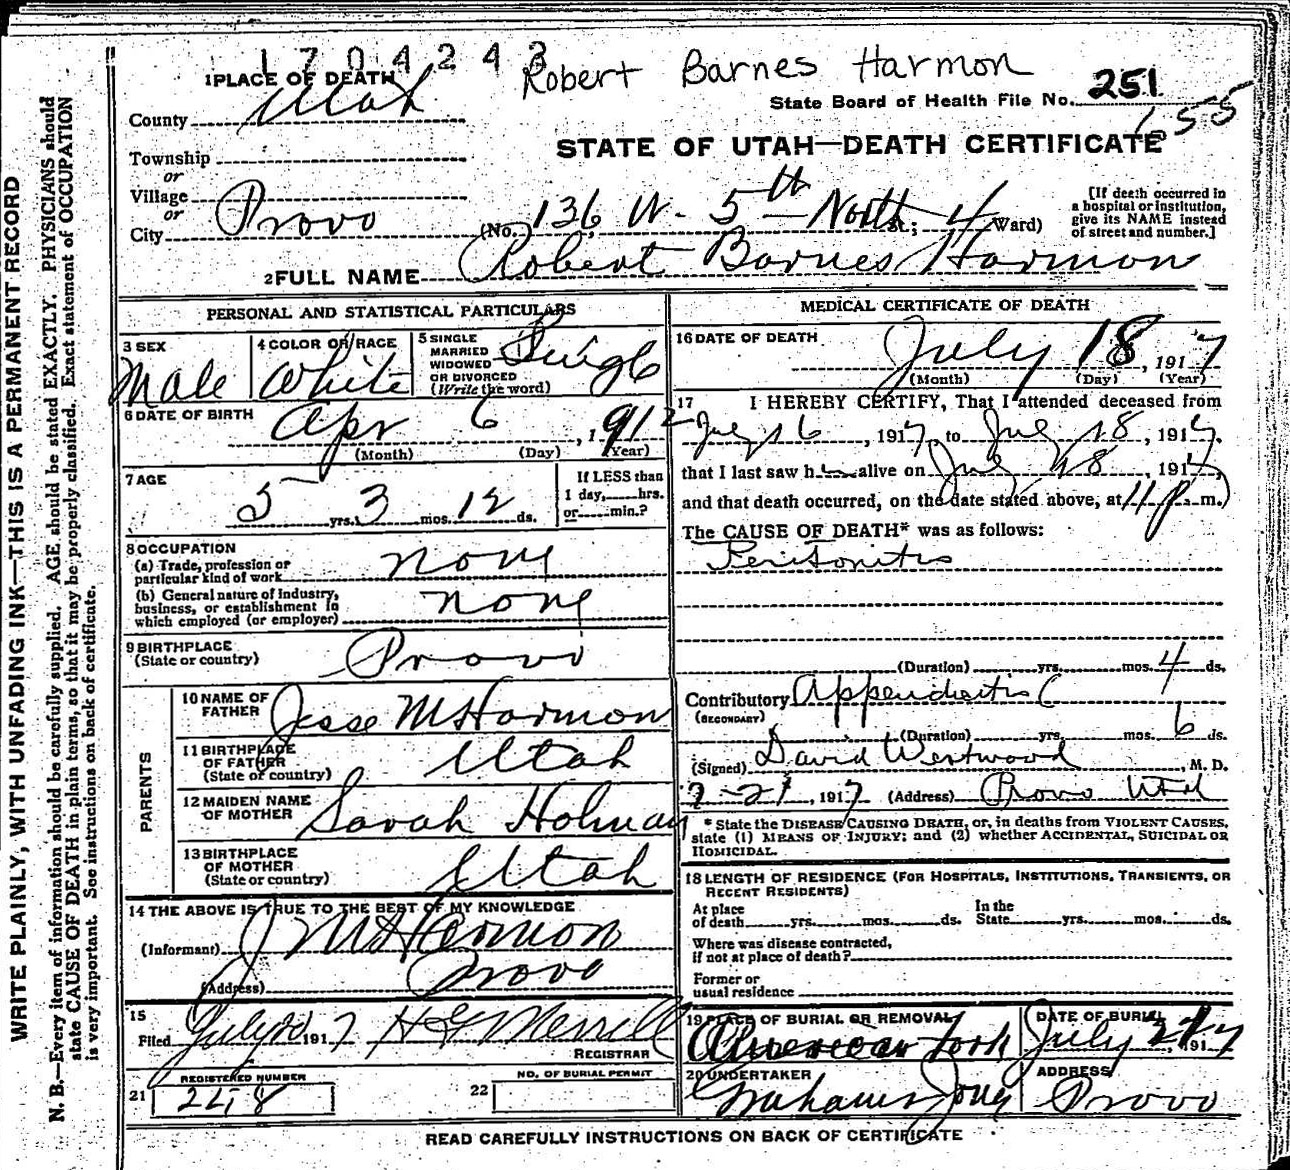 1704243
Robert Barnes Harmon
1 PLACE OF DEATH
State Board of Health File No. 251
155
County Utah
STATE OF UTAH—DEATH CERTIFICATE
Township
or
Village
or
City Provo (No. 136 W. 5th North St.; 4 Ward)
[If death occurred in
a hospital or institution,
give its NAME instead
of street and number.]
2 FULL NAME Robert Barnes Harmon
PERSONAL AND STATISTICAL PARTICULARS
3 SEX
Male
4 COLOR OR RACE
White
5 SINGLE
MARRIED
WIDOWED
OR DIVORCED
(Write the word)
Single
6 DATE OF BIRTH
Apr 6, 1912
(Month) (Day) (Year)
7 AGE
5 yrs. 3 mos. 12 ds.
If LESS than
1 day, hrs.
or min.?
8 OCCUPATION
(a) Trade, profession or
particular kind of work none
(b) General nature of Industry,
business, or establishment in
which employed (or employer) none
9 BIRTHPLACE
(State or country) Provo
PARENTS
10 NAME OF
FATHER Jesse M Harmon
11 BIRTHPLACE
OF FATHER
(State or country) Utah
12 MAIDEN NAME
OF MOTHER Sarah Holman
13 BIRTHPLACE
OF MOTHER
(State or country) Utah
14 THE ABOVE IS TRUE TO THE BEST OF MY KNOWLEDGE
(Informant) J M Harmon
(Address) Provo
15
Filed July 1917 H G Merrell
REGISTRAR
REGISTERED NUMBER
21 248
NO. OF BURIAL PERMIT
22
MEDICAL CERTIFICATE OF DEATH
16 DATE OF DEATH
July 18, 1917
(Month) (Day) (Year)
17 I HEREBY CERTIFY, That I attended deceased from
July 16, 1917, to July 18, 1917,
that I last saw h alive on July 18, 1917,
and that death occurred, on the date stated above, at 11 p m.
The CAUSE OF DEATH* was as follows:
Peritonitis
(Duration) yrs. mos. 4 ds.
Contributory Appendicitis
(SECONDARY)
(Duration) yrs. mos. 6 ds.
(Signed) David Westwood, M. D.
7-21, 1917 (Address) Provo Utah
* State the DISEASE CAUSING DEATH, or, in deaths from VIOLENT CAUSES,
state (1) MEANS OF INJURY; and (2) whether ACCIDENTAL, SUICIDAL OR
HOMICIDAL.
18 LENGTH OF RESIDENCE (FOR HOSPITALS, INSTITUTIONS, TRANSIENTS, OR
RECENT RESIDENTS)
At place
of death yrs. mos. ds.
In the
State yrs. mos. ds.
Where was disease contracted,
if not at place of death?
Former or
usual residence
19 PLACE OF BURIAL OR REMOVAL
American Fork
DATE OF BURIAL
July 21, 1917
20 UNDERTAKER
ADDRESS
Provo
READ CAREFULLY INSTRUCTIONS ON BACK OF CERTIFICATE
WRITE PLAINLY, WITH UNFADING INK—THIS IS A PERMANENT RECORD
N. B.—Every item of information should be carefully supplied. AGE should be stated EXACTLY. PHYSICIANS should
state CAUSE OF DEATH in plain terms, so that it may be properly classified. Exact statement of OCCUPATION
is very important. See instructions on back of certificate.